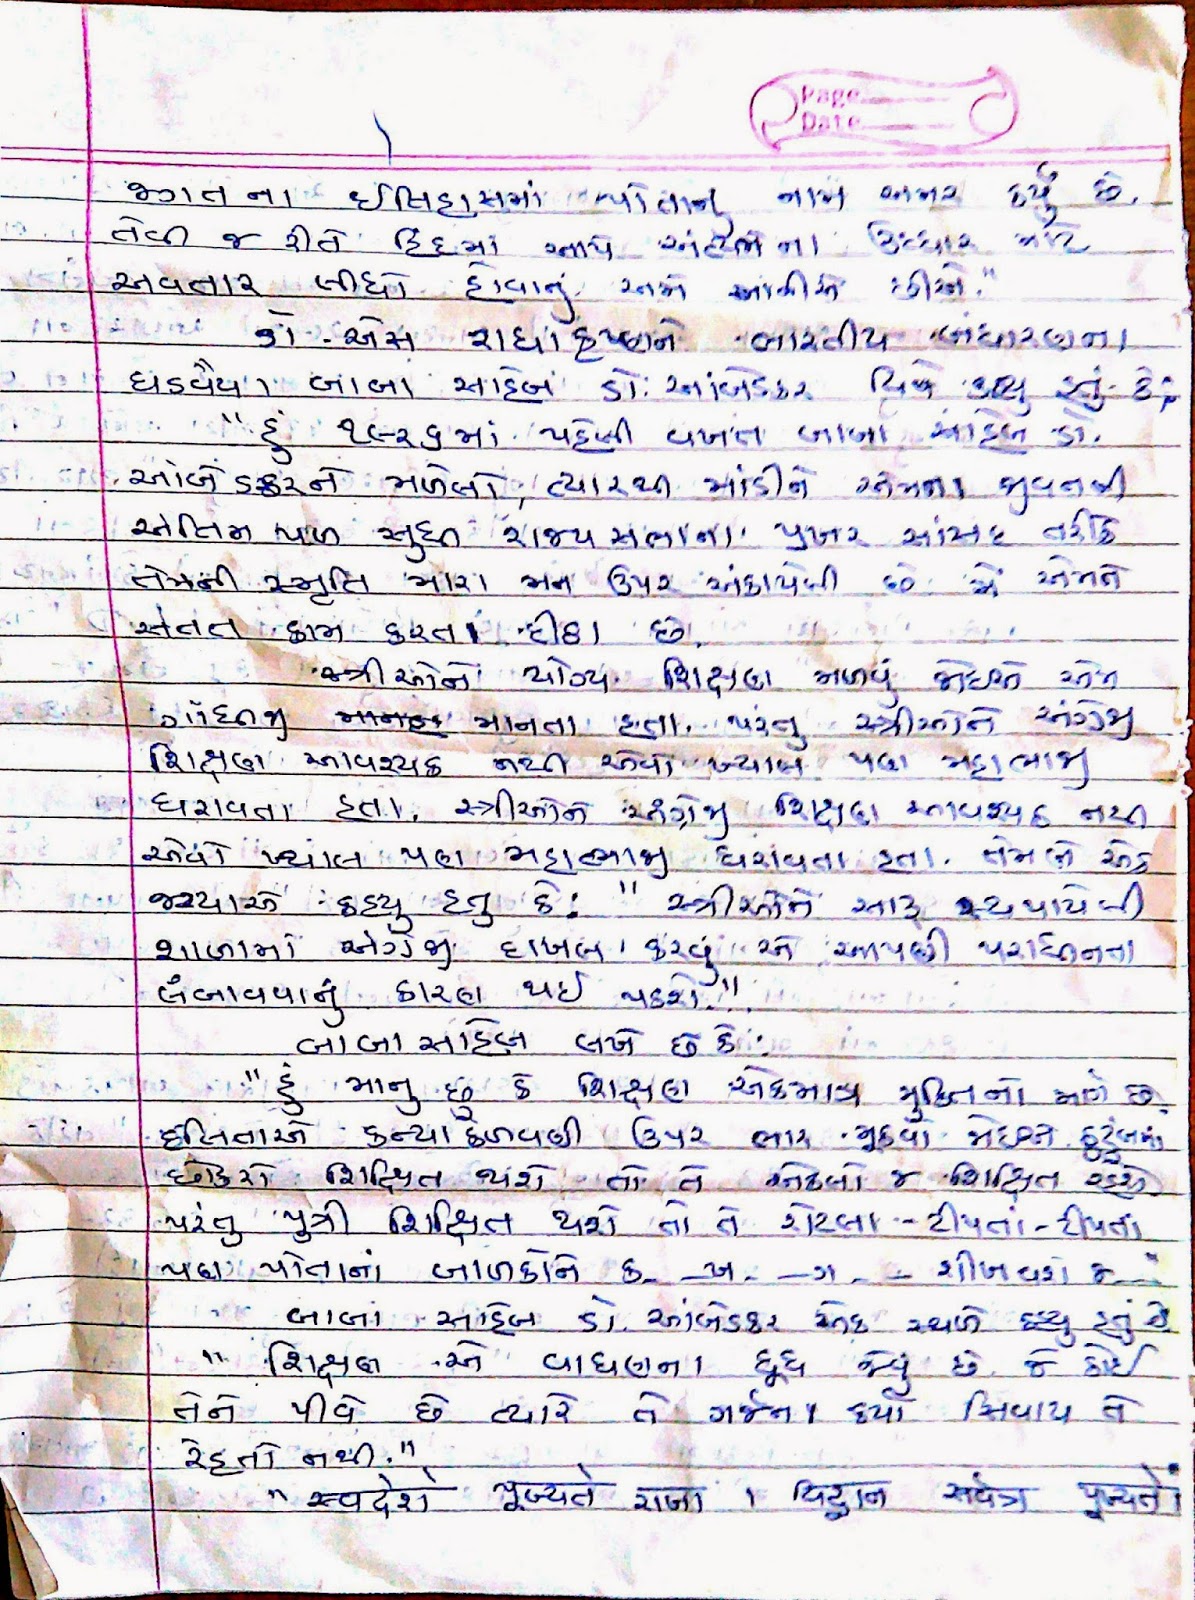 Page
Date
જગતના ઈતિહાસમાં પોતાનું નામ અમર કર્યું છે.
તેવી જ રીતે હિંદમાં આપે અંત્યજોના ઉદ્ધાર માટે
અવતાર લીધો હોવાનું અમે માનીએ છીએ."
ડો. એસ રાધાકૃષ્ણને ભારતીય બંધારણના
ઘડવૈયા બાબા સાહેબ ડો. આંબેડકર વિષે કહ્યુ હતું કે;
"હું ૧૯૨૬માં પહેલી વખત બાબા સાહેબ ડો.
આંબેડકરને મળેલો, ત્યારથી માંડીને એમના જીવનની
અંતિમ પળ સુધી રાજ્યસભાના પ્રખર સાંસદ તરીકે
તેમની સ્મૃતિ મારા મન ઉપર અંકાયેલી છે મેં એમને
સતત કામ કરતાં દીઠા છે.
સ્ત્રીઓને યોગ્ય શિક્ષણ મળવું જોઈએ એમ
ગાંધીજી માનતા હતા. પરંતુ સ્ત્રીઓને અંગ્રેજી
શિક્ષણ આવશ્યક નથી એવો ખ્યાલ પણ મહાત્માજી
ધરાવતા હતા. સ્ત્રીઓને અંગ્રેજી શિક્ષણ આવશ્યક નથી
એવો ખ્યાલ પણ મહાત્માજી ધરાવતા હતા. તેમણે એક
જગ્યાએ કહ્યુ હતુ કે: "સ્ત્રીઓને સારૂ સ્થપાયેલી
શાળામાં અંગ્રેજી દાખલ કરવું એ આપણી પરાધીનતા
લંબાવવાનું કારણ થઈ પડશે."
બાબા સાહેબ લખે છે કે:
"હું માનુ છું કે શિક્ષણ એકમાત્ર મુક્તિનો માર્ગ છે.
દલિતોએ કન્યા કેળવણી ઉપર ભાર મૂકવો જોઈએ કુટુંબનો
છોકરો શિક્ષિત થશે તો તે એકલો જ શિક્ષિત રહેશે
પરંતુ પુત્રી શિક્ષિત થશે તો તે રોટલા - ટીપતાં - ટીપતાં
પણ પોતાનાં બાળકોને ક - ખ - ગ - શીખવશે જ"
બાબા સાહેબ ડો. આંબેડકર એક સ્થળે કહ્યુ હતું કે
"શિક્ષણ એ વાઘણના દૂધ જેવું છે જે કોઈ
તેને પીવે છે ત્યારે તે ગર્જના કર્યા સિવાય તે
રેહતો નથી."
"સ્વદેશે પૂજ્યતે રાજા । વિદ્વાન સર્વત્ર પૂજ્યતે।